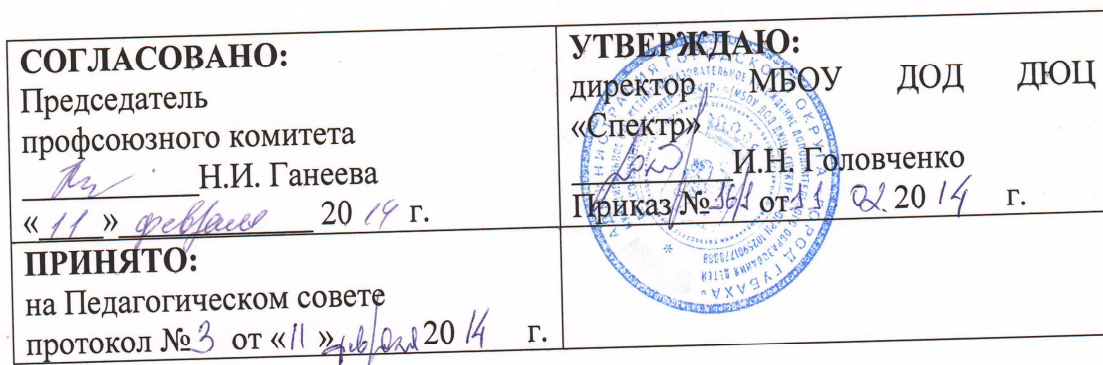 СОГЛАСОВАНО:
Председатель
профсоюзного комитета
Н.И. Ганеева
«11» февраля 2014 г.
УТВЕРЖДАЮ:
директор МБОУ ДОД ДЮЦ
«Спектр»
И.Н. Головченко
Приказ № 36/1 от 11 02. 2014 г.
ПРИНЯТО:
на Педагогическом совете
протокол №3 от «11» февраля 2014 г.